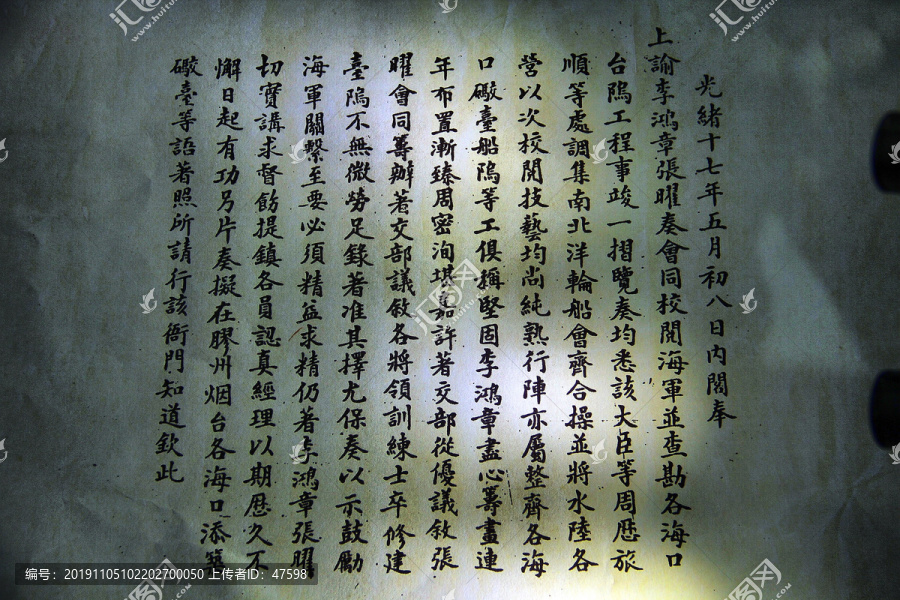 光緒十七年五月初八日內閣奉
上諭李鴻章張曜奏會同校閱海軍並查勘各海口
台隖工程事竣一摺覽奏均悉該大臣等周歷旅
順等處調集南北洋輪船會齊合操並將水陸各
營以次校閱技藝均尚純熟行陣亦屬整齊各海
口礮臺船隖等工俱稱堅固李鴻章盡心籌畫連
年布置漸臻周密洵堪嘉許著交部從優議敘張
曜會同籌辦著交部議敘各將領訓練士卒修建
臺隖不無微勞足錄著准其擇尤保奏以示鼓勵
海軍關繫至要必須精益求精仍著李鴻章張曜
切實講求督飭提鎮各員認真經理以期歷久不
懈日起有功另片奏擬在膠州烟台各海口添築
礮臺等語著照所請行該衙門知道欽此
编号：20191105102202700050 上传者ID：47598
汇图网
www.huitu.com